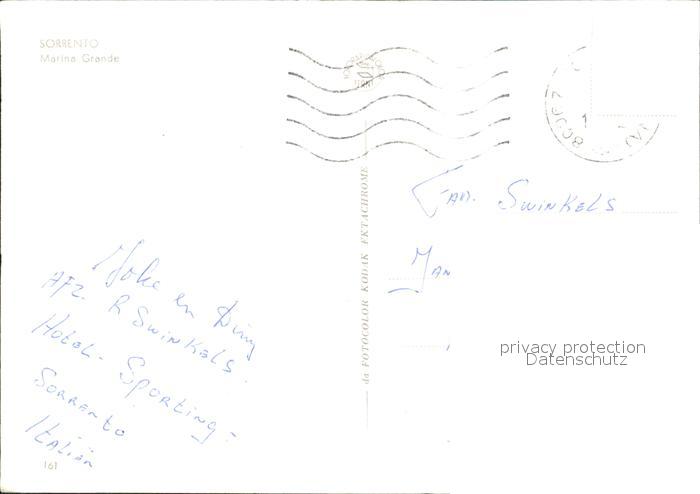 SORRENTO
Marina Grande
Fam. Swinkels
Jan
privacy protection
Datenschutz
Joke en Diny
Afz. R Swinkels.
Hotel- Sporting-
Sorrento
Italiën
da FOTOCOLOR KODAK EKTACHROME
161